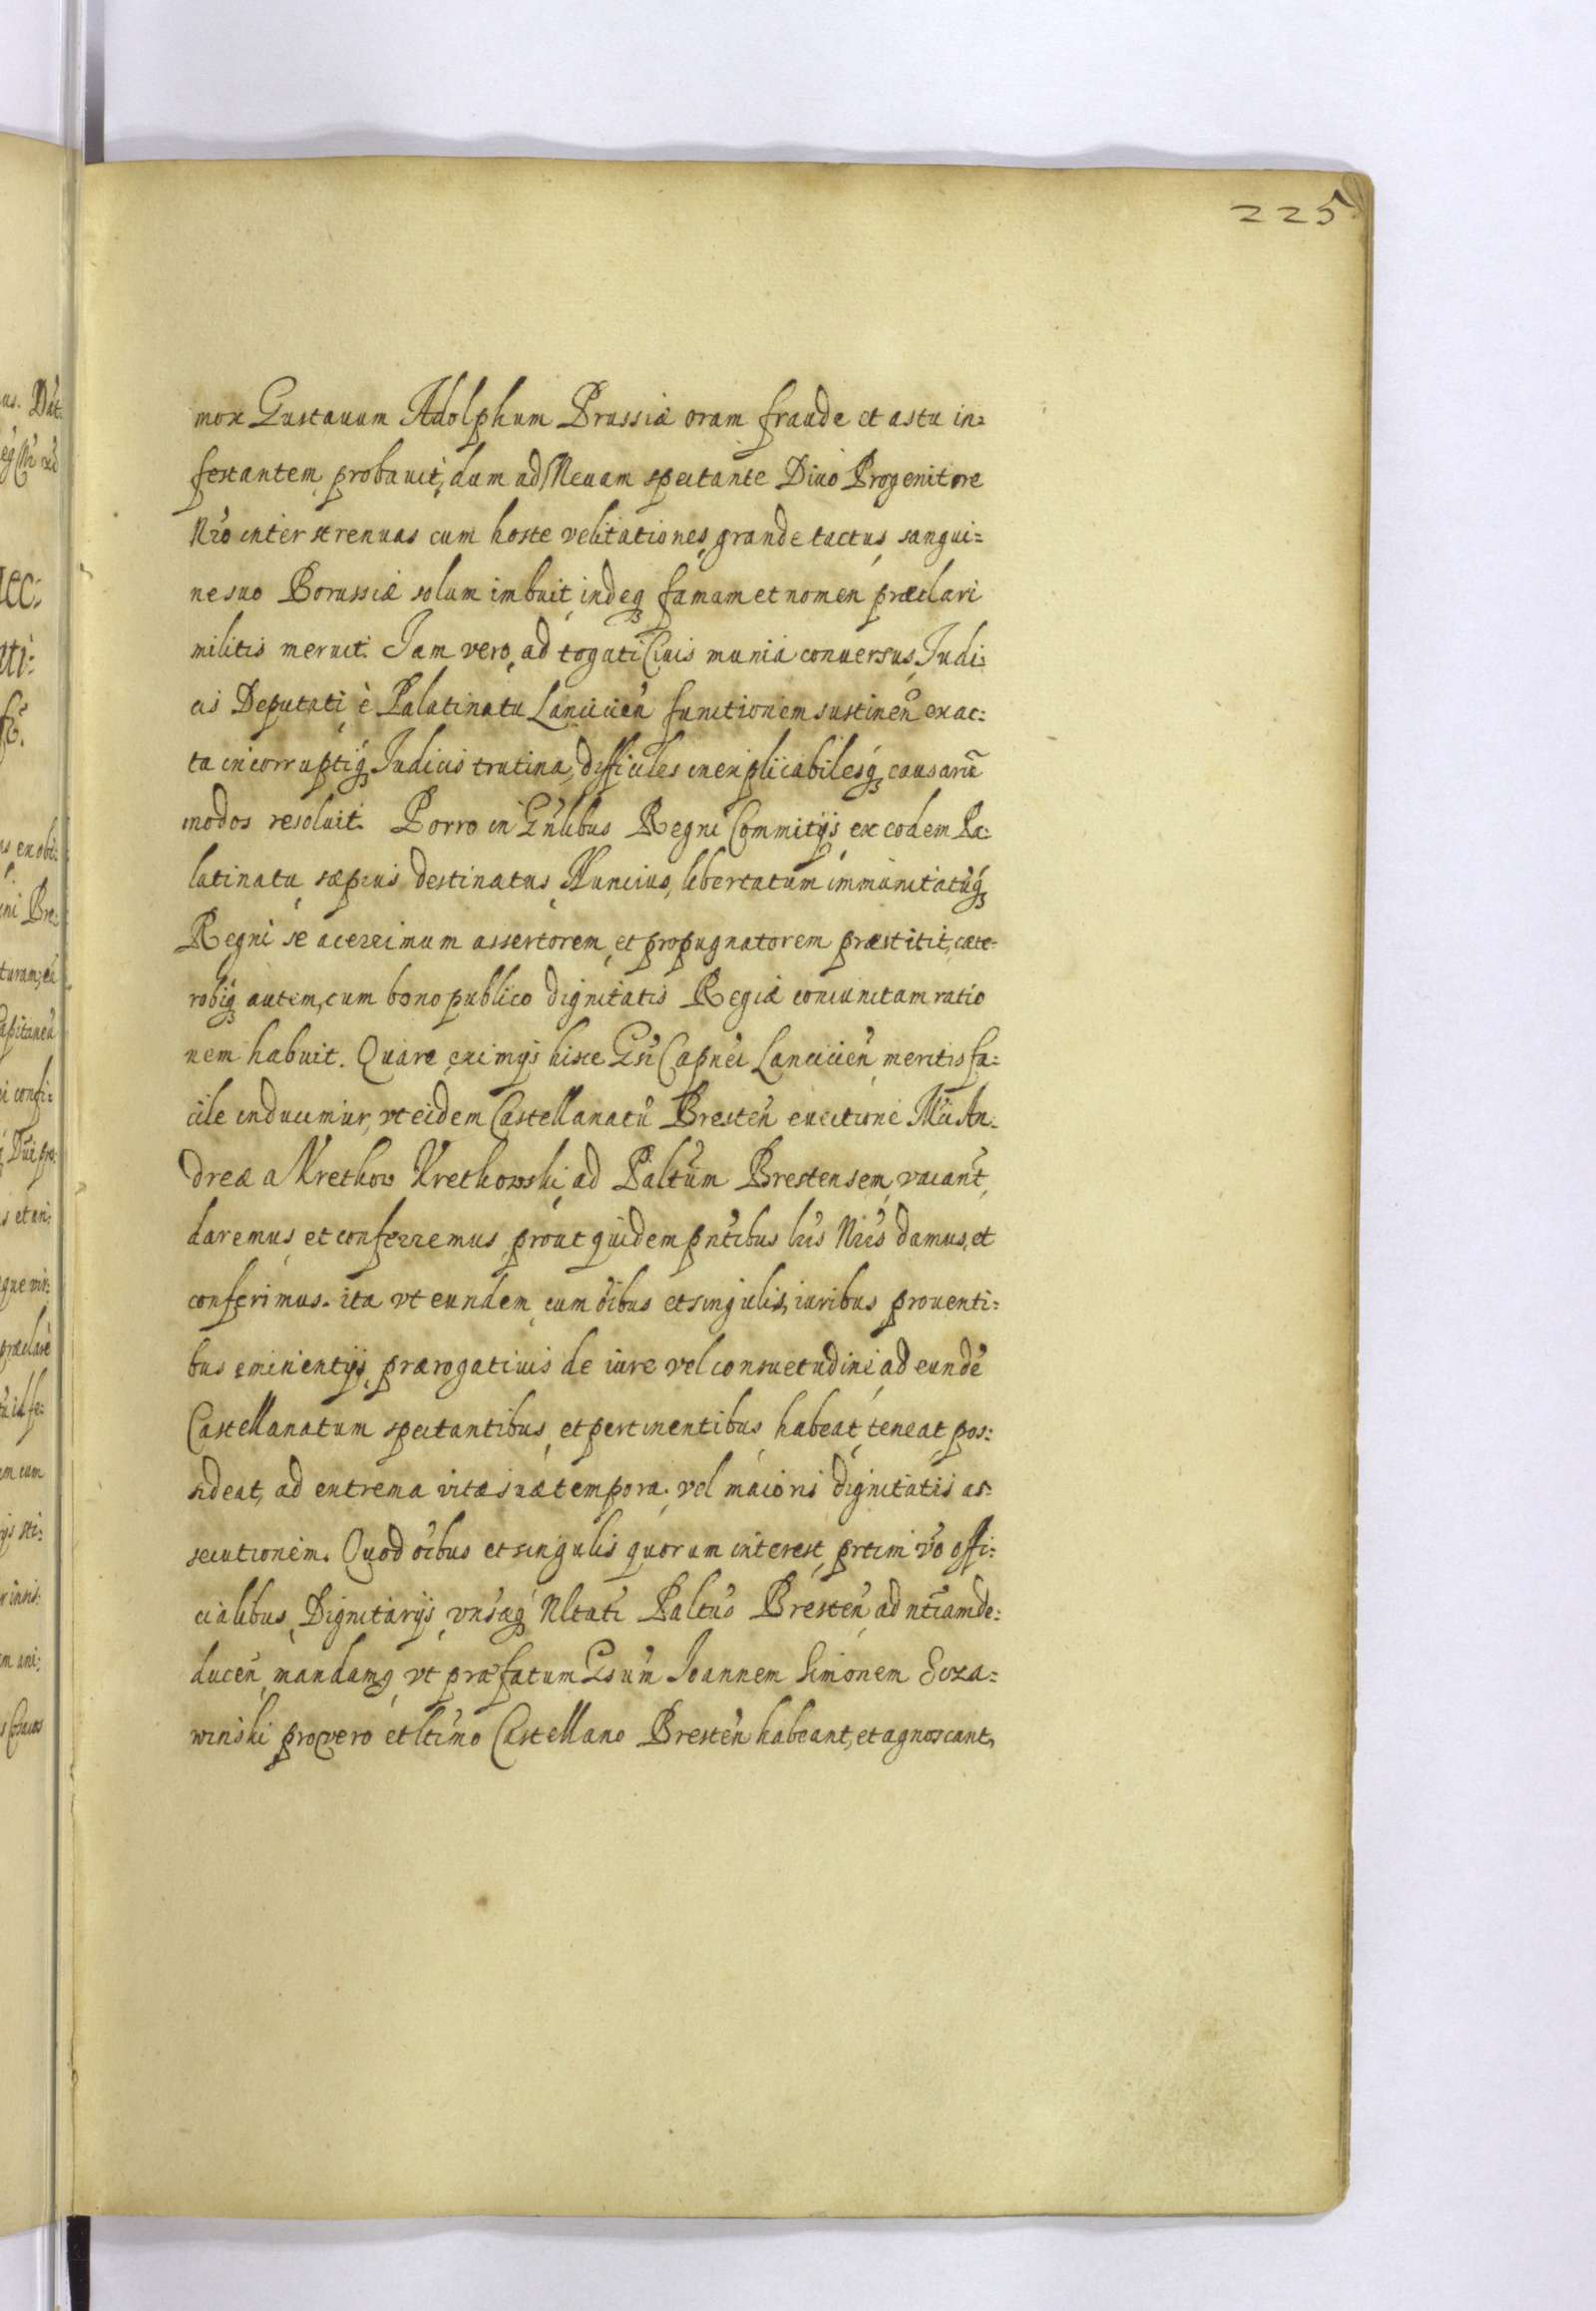 225
mox Gustauum Adolphum Prussiæ oram fraude et astu in=
festantem, probauit, dum ad Meuam spectante Diuo Progenitore
Nr̃o inter strenuas cum hoste velitationes, grande tactus, sangui=
ne suo Borussiæ solum imbuit, indeq3 famam et nomen præclari
militis meruit. Jam vero, ad togati Ciuis munia conuersus, Judi=
cis Deputati, è Palatinatu Lancicieñ functionem sustineñ exac=
ta incorruptiq3 Judicis trutina, difficiles inexplicabilesq3 causarũ
modos resoluit. Porro in Gñlibus Regni Commitijs, ex eodem Pa=
latinatu, sæpius destinatus, Nuncius, libertatum immunitatũq3
Regni se acerrimum assertorem, et propugnatorem præstitit, cæte=
robiq3 autem, cum bono publico dignitatis Regiæ coniunctam ratio
nem habuit. Quare, eximijs hisce Gsi Capnei Lancicieñ, meritis fa=
cile inducimur, vt eidem Castellanatũ Bresteñ euectione Mci An=
dreæ a Kretkow Kretkowski, ad Paltũm Brestensem, vacant̃,
daremus, et conferremus, prout quidem pñtibus lr̃is Nr̃is damus, et
conferimus. ita vt eundem, cum õibus et singulis, iuribus prouenti=
bus eminentijs, prærogatiuis de iure vel consuetudine, ad eundẽ
Castellanatum spectantibus, et pertinentibus, habeat, teneat, pos=
sideat, ad extrema vitæ suæ tempora. vel maioris dignitatis as=
secutionem. Quod õibus et singulis quorum interest, prtim võ offi=
cialibus, Dignitarijs, vñsæq3 Nltati Paltũs Bresteñ, ad ntĩam de=
duceñ, mandamq, vt præfatum Gsũm Joannem Simonem Szcza=
winski pro vero et ltimo Castellano Bresteñ habeant, et agnoscant,